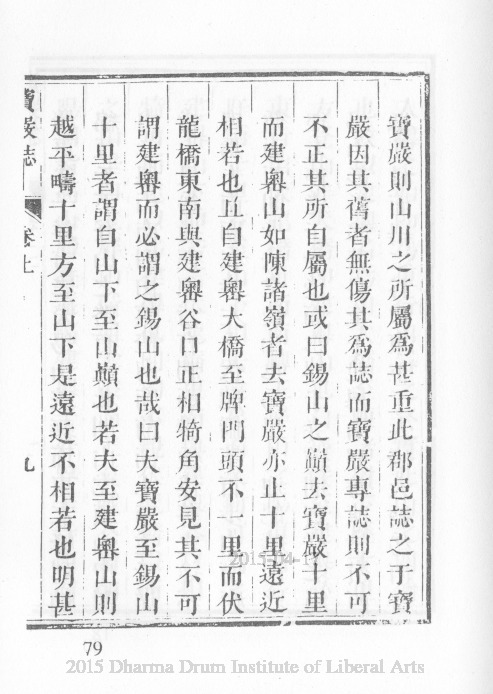 寶嚴則山川之所屬爲甚重此郡邑誌之于寶
嚴因其舊者無傷其爲誌而寶嚴專誌則不可
不正其所自屬也或曰錫山之巔去寶嚴十里
而建嶴山如陳諸嶺者去寶嚴亦止十里遠近
相若也且自建嶴大橋至牌門頭不一里而伏
龍橋東南與建嶴谷口正相犄角安見其不可
謂建嶴而必謂之錫山也哉曰夫寶嚴至錫山
十里者謂自山下至山巔也若夫至建嶴山則
越平疇十里方至山下是遠近不相若也明甚
寶嚴誌 卷上 九
79
2015 Dharma Drum Institute of Liberal Arts